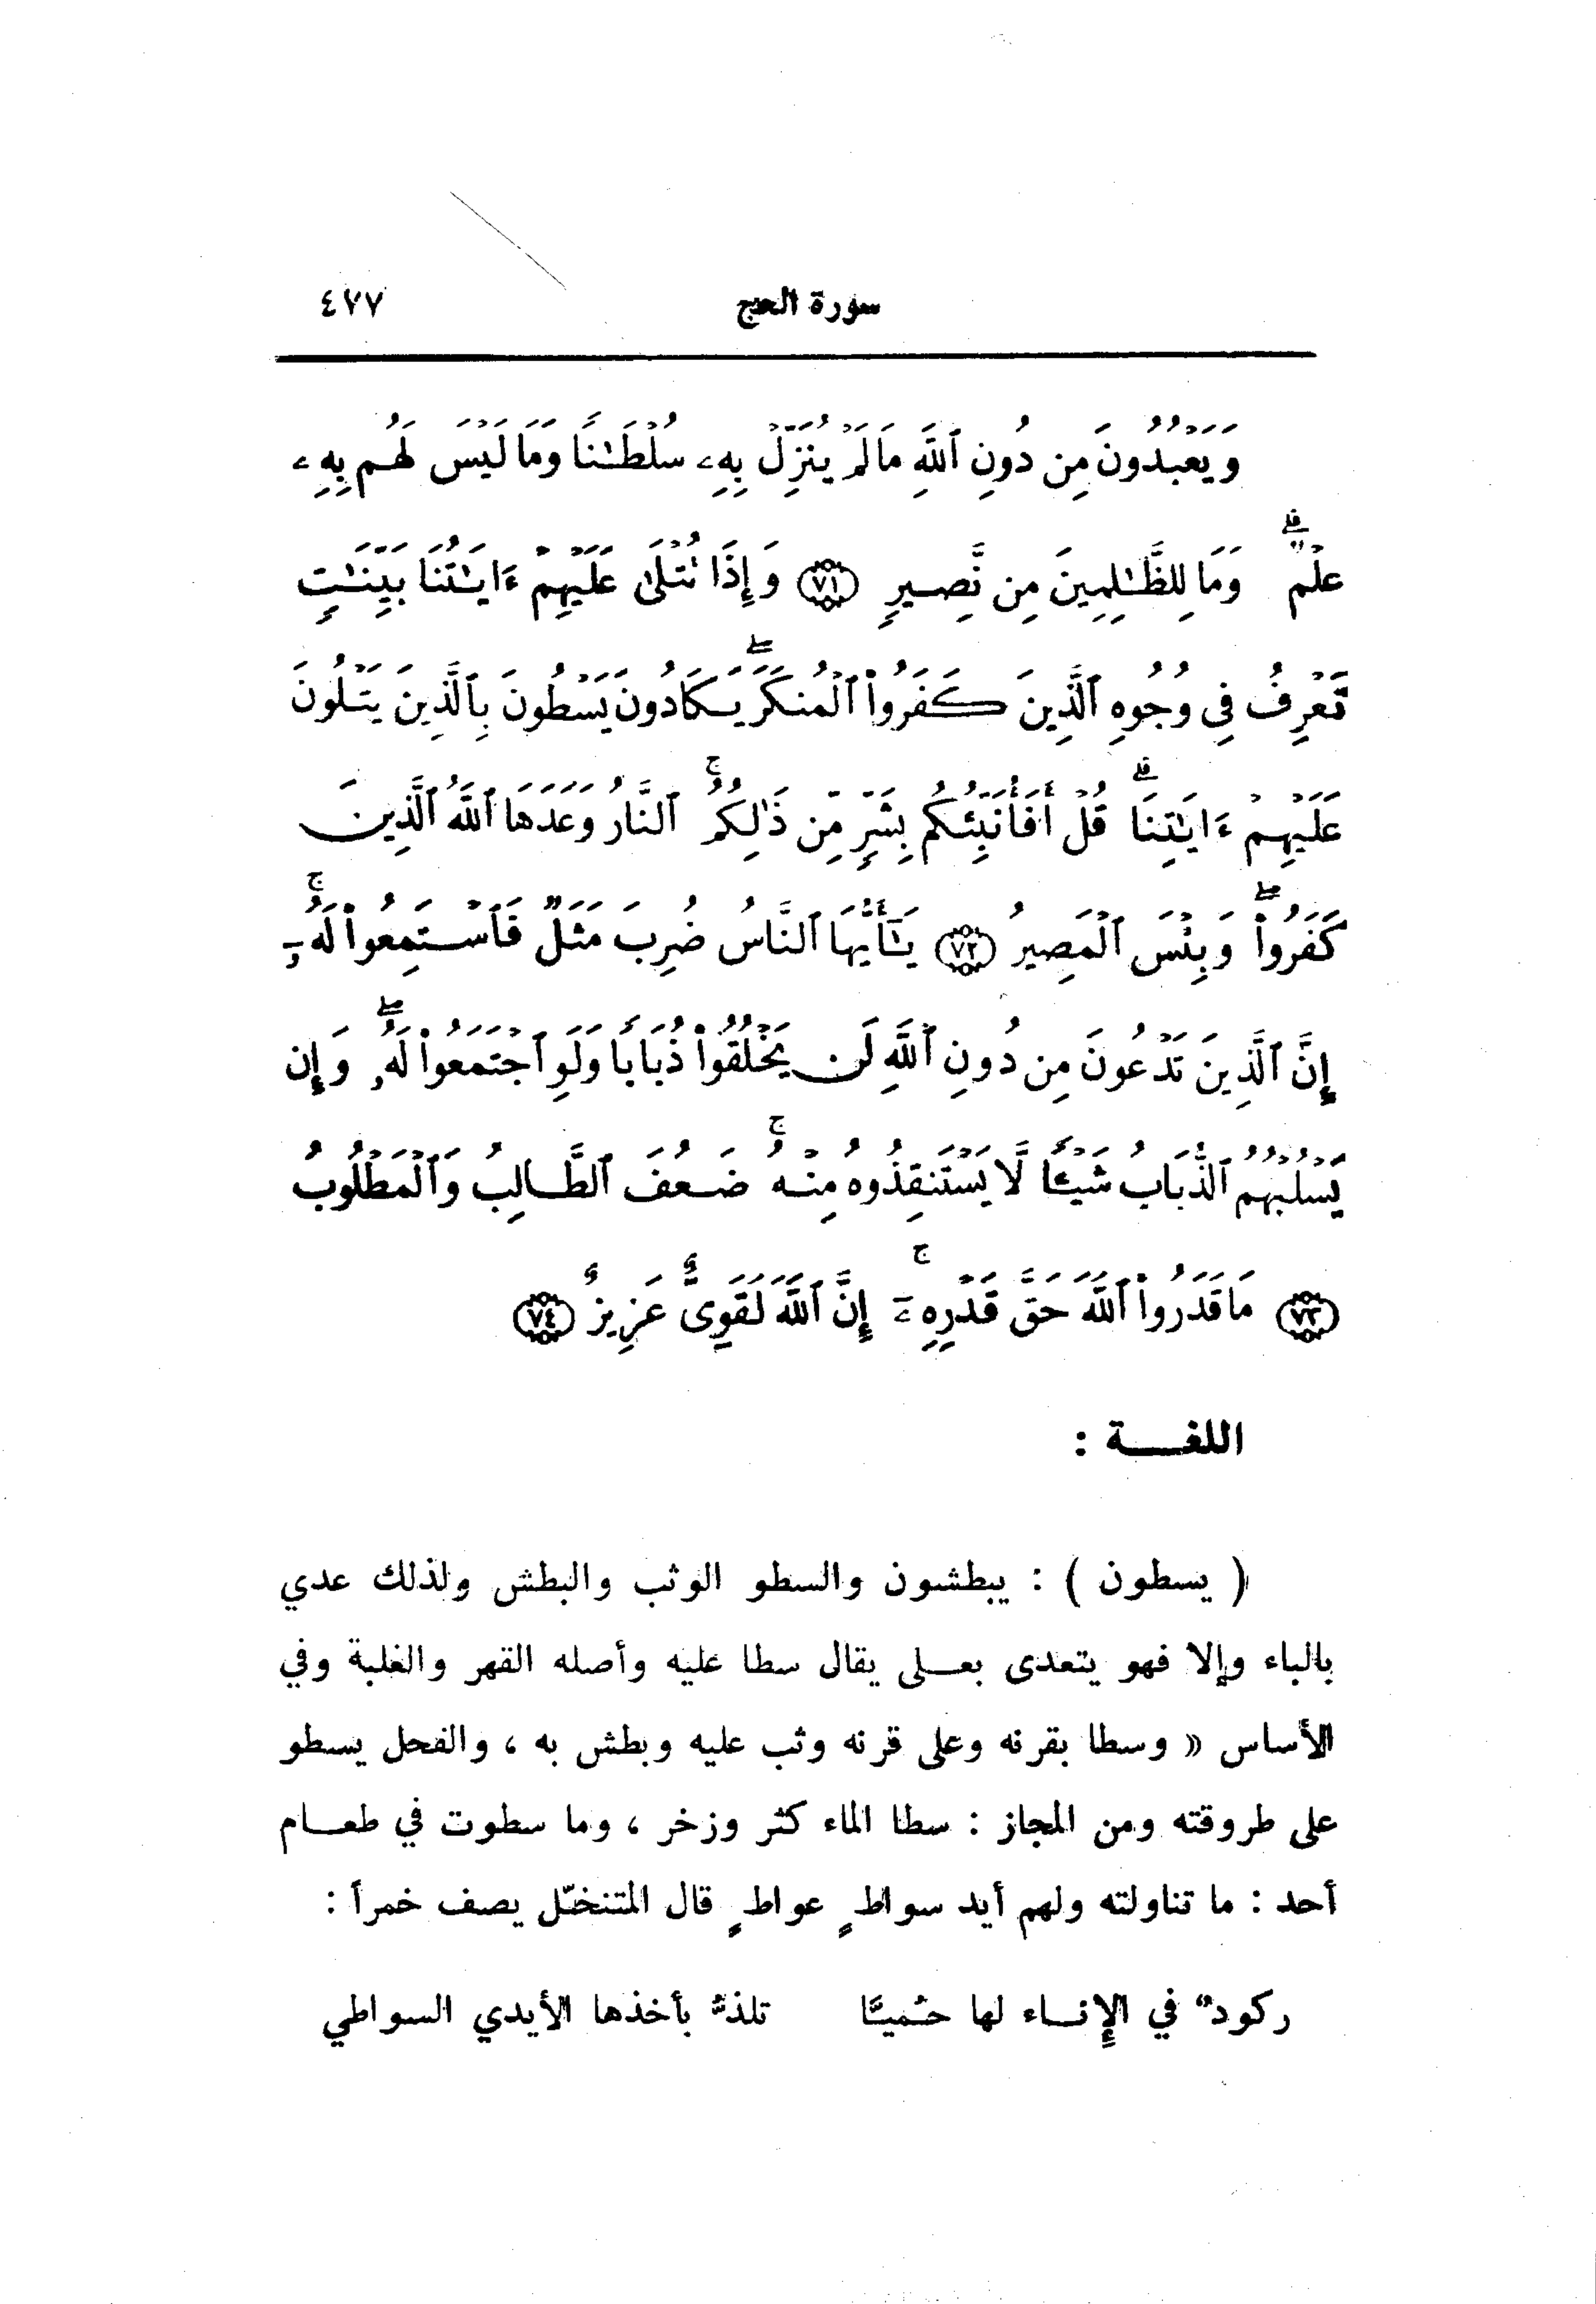 سورة الحج ٤٧٧
وَيَعْبُدُونَ مِن دُونِ ٱللَّهِ مَا لَمْ يُنَزِّلْ بِهِۦ سُلْطَـٰنًا وَمَا لَيْسَ لَهُم بِهِۦ
عِلْمٌ ۗ وَمَا لِلظَّـٰلِمِينَ مِن نَّصِيرٍ ﴿٧١﴾ وَإِذَا تُتْلَىٰ عَلَيْهِمْ ءَايَـٰتُنَا بَيِّنَـٰتٍ
تَعْرِفُ فِى وُجُوهِ ٱلَّذِينَ كَفَرُوا۟ ٱلْمُنكَرَ ۖ يَكَادُونَ يَسْطُونَ بِٱلَّذِينَ يَتْلُونَ
عَلَيْهِمْ ءَايَـٰتِنَا ۗ قُلْ أَفَأُنَبِّئُكُم بِشَرٍّ مِّن ذَٰلِكُمُ ۚ ٱلنَّارُ وَعَدَهَا ٱللَّهُ ٱلَّذِينَ
كَفَرُوا۟ ۖ وَبِئْسَ ٱلْمَصِيرُ ﴿٧٢﴾ يَـٰٓأَيُّهَا ٱلنَّاسُ ضُرِبَ مَثَلٌ فَٱسْتَمِعُوا۟ لَهُۥٓ ۚ
إِنَّ ٱلَّذِينَ تَدْعُونَ مِن دُونِ ٱللَّهِ لَن يَخْلُقُوا۟ ذُبَابًا وَلَوِ ٱجْتَمَعُوا۟ لَهُۥ ۖ وَإِن
يَسْلُبْهُمُ ٱلذُّبَابُ شَيْـًٔا لَّا يَسْتَنقِذُوهُ مِنْهُ ۚ ضَعُفَ ٱلطَّالِبُ وَٱلْمَطْلُوبُ
﴿٧٣﴾ مَا قَدَرُوا۟ ٱللَّهَ حَقَّ قَدْرِهِۦٓ ۚ إِنَّ ٱللَّهَ لَقَوِىٌّ عَزِيزٌ ﴿٧٤﴾
اللغــة :
( يسطون ) : يبطشون والسطو الوثب والبطش ولذلك عدي
بالباء وإلا فهو يتعدى بعـلى يقال سطا عليه وأصله القهر والغلبة وفي
الأساس « وسطا بقرنه وعلى قرنه وثب عليه وبطش به ، والفحل يسطو
على طروقته ومن المجاز : سطا الماء كثر وزخر ، وما سطوت في طعـام
أحد : ما تناولته ولهم أيد سواطٍ عواطٍ قال المتنخّل يصف خمراً :
ركودٌ في الإنـاء لها حُميـّا تلذُّ بأخذها الأيدي السواطي